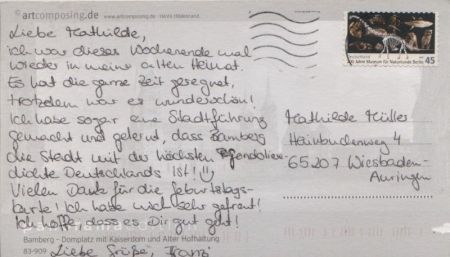 © artcomposing.de www.artcomposing.de · Heinz Hildebrand
Liebe Mathilde,
ich war dieses Wochenende mal
wieder in meiner alten Heimat.
Es hat die ganze Zeit geregnet,
trotzdem war es wunderschön!
Ich habe sogar eine Stadtführung
gemacht und gelernt, dass Bamberg
die Stadt mit der höchsten
dichte Deutschlands ist!
Vielen Dank für die Geburtstags-
karte! Ich habe mich sehr gefreut!
Ich hoffe, dass es Dir gut geht!
Bamberg - Domplatz mit Kaiserdom und Alter Hofhaltung
83-909
Liebe Grüße, Franzi
Deutschland
200 Jahre Museum für Naturkunde Berlin
45
Mathilde Müller
Hainbuchenweg 4
65207 Wiesbaden-
Auringen